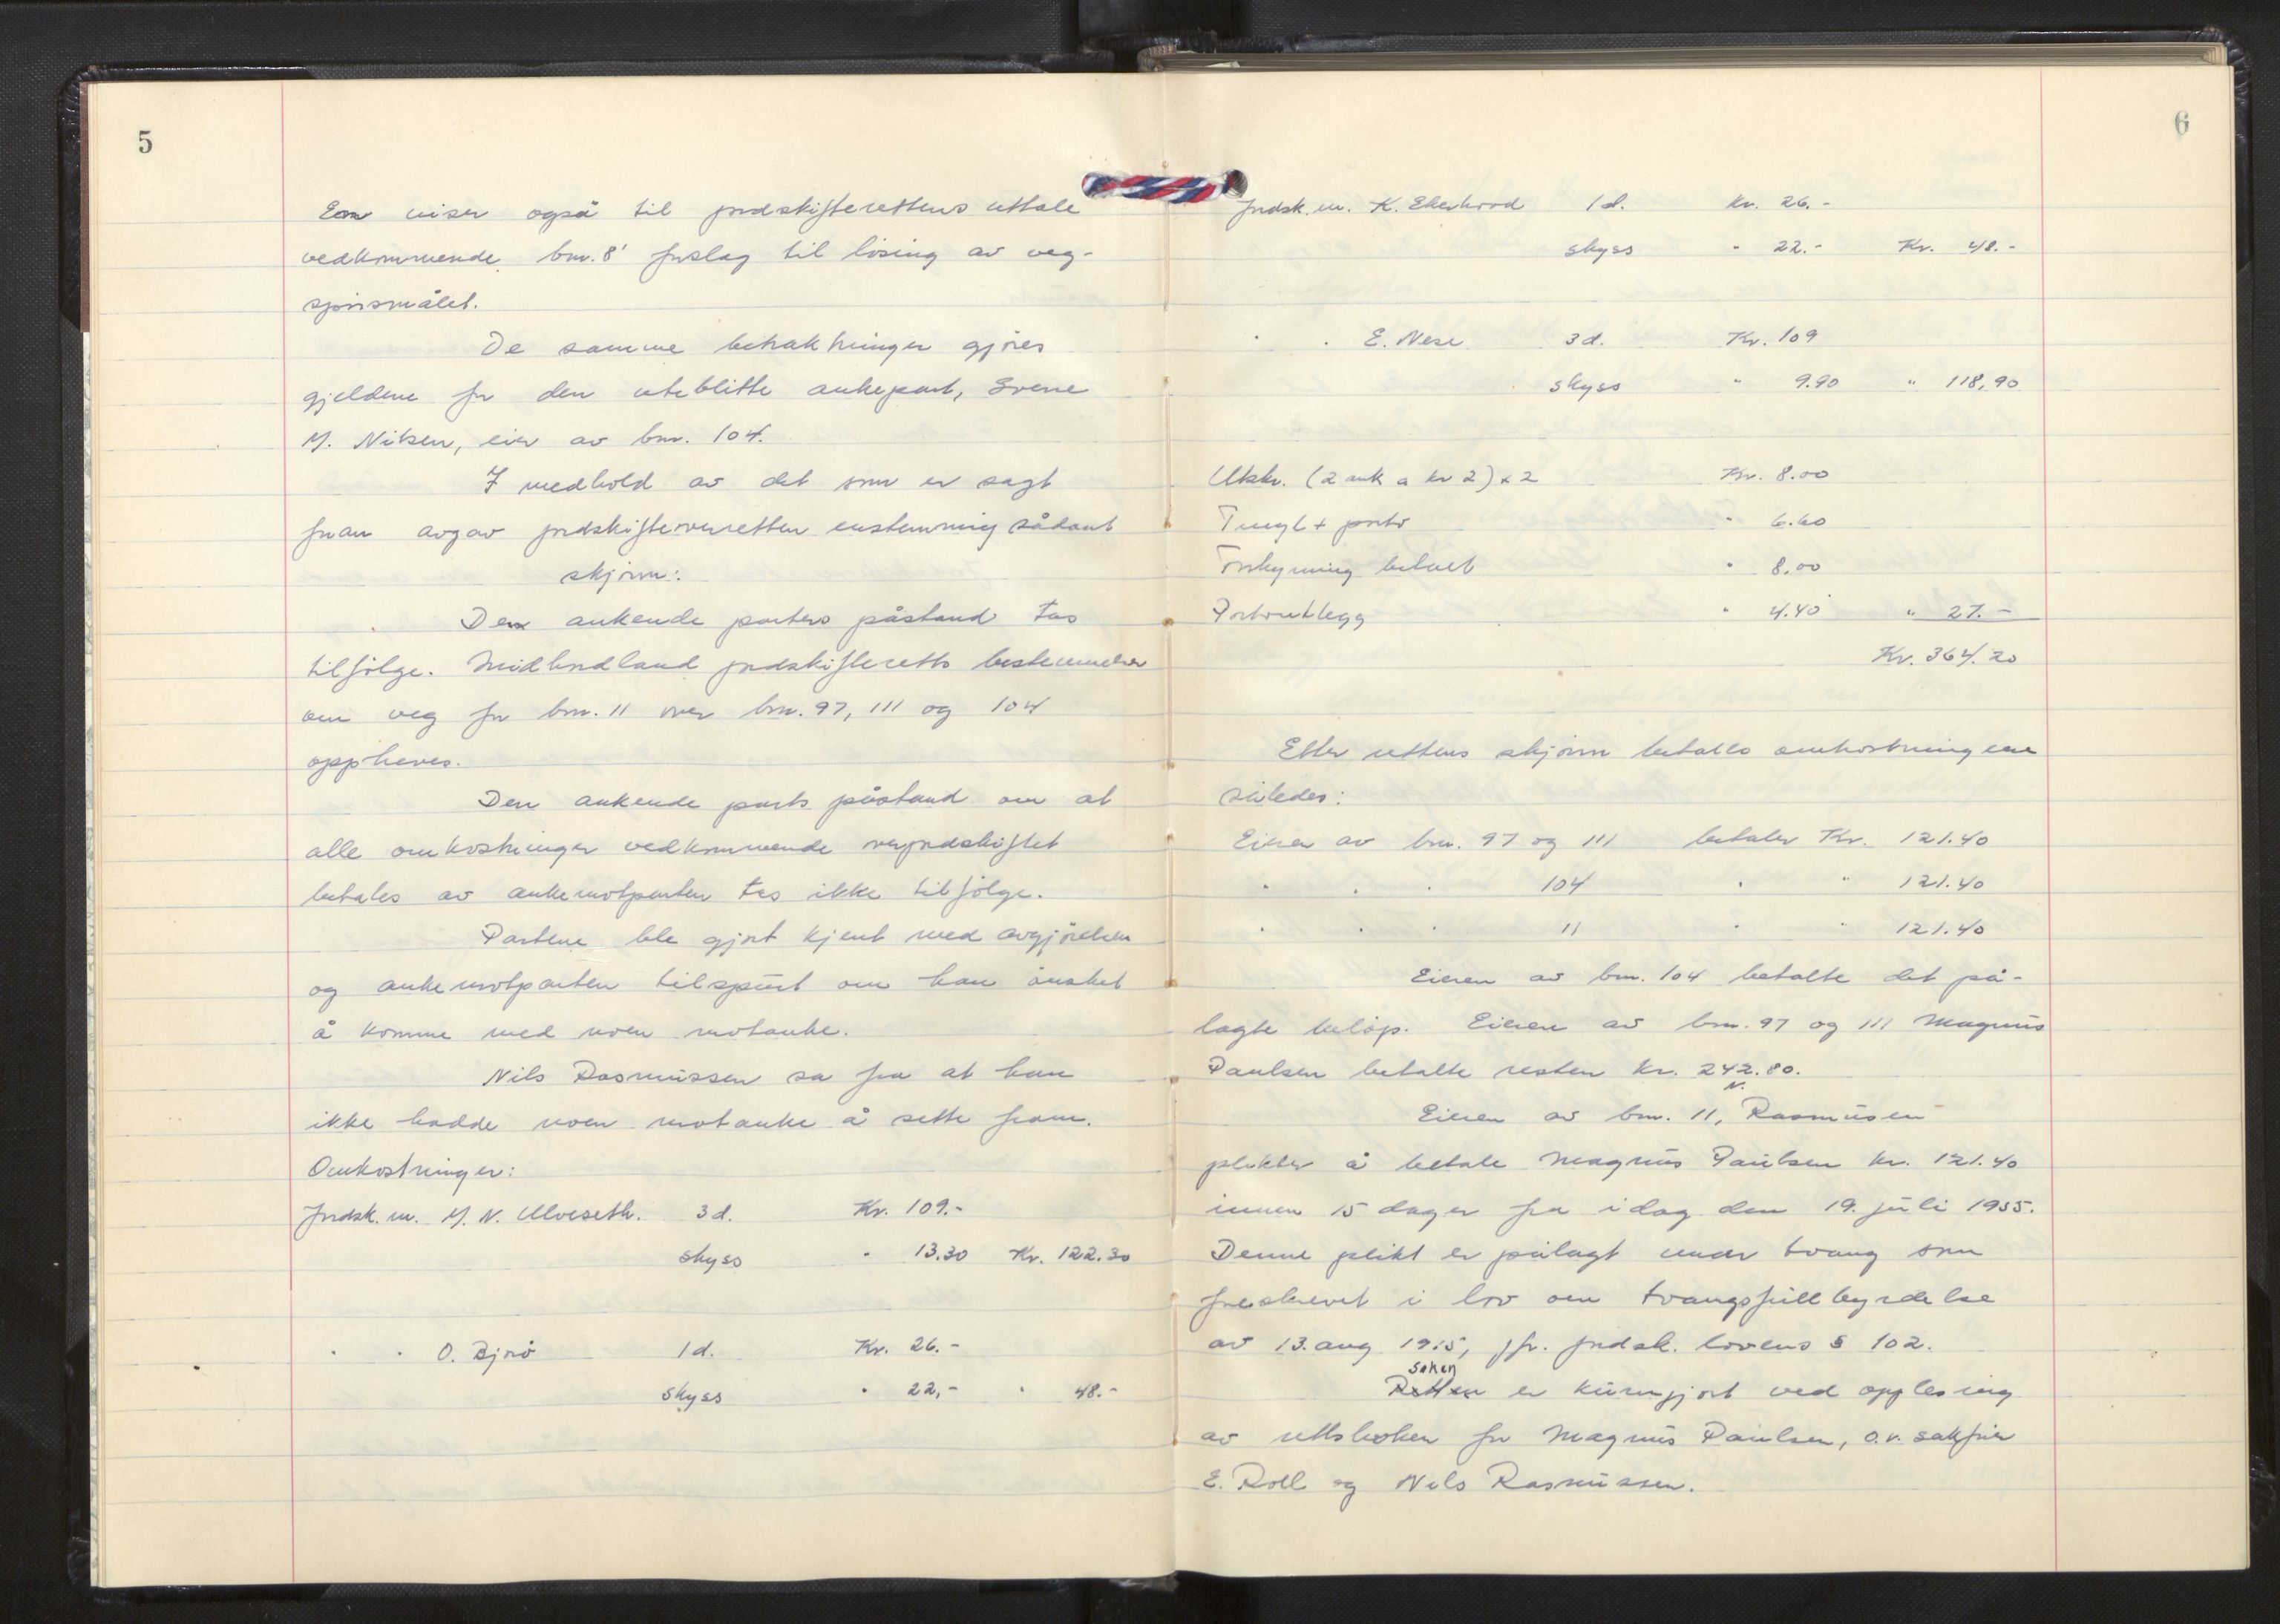 5
En viser også til jordskifterettens uttale
vedkommende bnr. 8' forslag til løsing av veg-
spørsmålet.
De samme betraktninger gjøres
gjeldene for den uteblitte ankepart, Sverre
M. Nilsen, eier av bnr. 104.
I medhold av det som er sagt
foran avgav jordskifteoverretten enstemmig sådant
skjønn:
Den ankende parters påstand tas
tilfølge. Midhordland jordskifteretts bestemmelser
om veg for bnr. 11 over bnr. 97, 111 og 104
oppheves.
Den ankende parts påstand om at
alle omkostninger vedkommende overjordskiftet
betales av ankemotparten tas ikke tilfølge.
Partene ble gjort kjent med avgjørelsen
og ankemotparten tilspurt om han ønsket
å komme med noen motanke.
Nils Rasmussen sa fra at han
ikke hadde noen motanke å sette fram.
Omkostninger:
Jordsk.m. M. N. Ulveseth. 3d. Kr. 109.-
skyss " 13.30 Kr. 122.30
" " O. Bjorø 1d. Kr. 26.-
skyss " 22,- " 48.-
6
Jordsk.m. K. Ekerhovd 1d. Kr. 26.-
skyss " 22.- Kr. 48.-
" " E. Nese 3d. Kr. 109
skyss " 9.90 " 118,90
Utskr. (2 ark a kr 2) x 2 Kr. 8.00
Tingl + porto " 6.60
Forkynning betalt " 8.00
Portoutlegg " 4.40 " 27.-
Kr. 364.20
Etter rettens skjønn betales omkostningene
således:
Eieren av bnr. 97 og 111 betaler Kr. 121.40
" " " 104 " " 121.40
" " " 11 " " 121.40
Eieren av bnr. 104 betalte det på-
lagte beløp. Eieren av bnr. 97 og 111 Magnus
Paulsen betalte resten kr. 242.80.
Eieren av bnr. 11, N. Rasmusen
plikter å betale Magnus Paulsen kr. 121.40
innen 15 dager fra idag den 19. juli 1955.
Denne plikt er pålagt under tvang som
foreskrevet i lov om tvangsfullbyrdelse
av 13. aug 1915, jfr. jordsk. lovens § 102.
Saken
Retten er kunngjort ved opplesing
av rettsboken for Magnus Paulsen, o.r. sakfører
E. Roll og Nils Rasmussen.